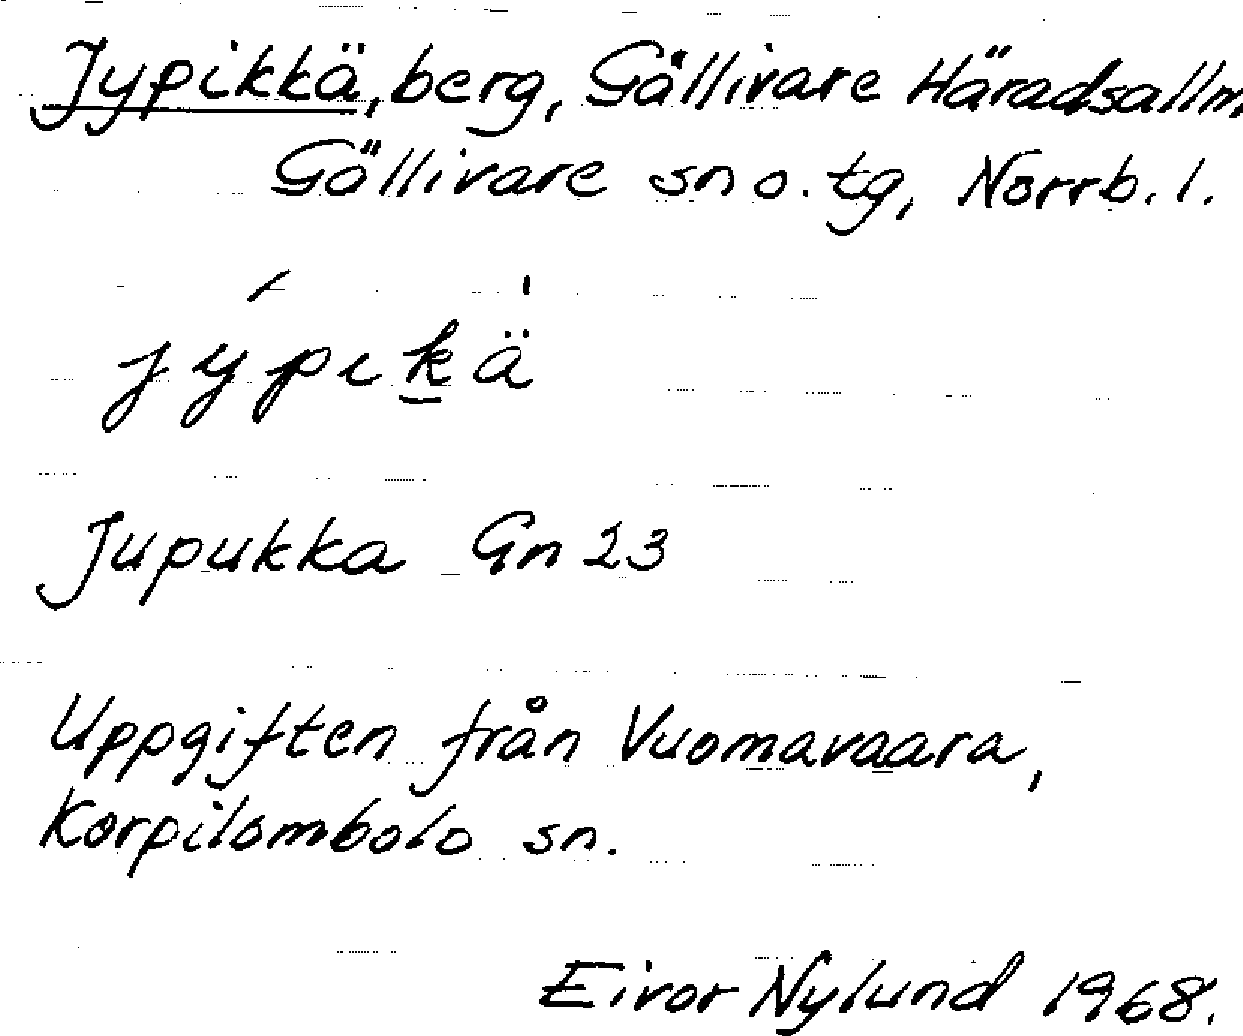 Jypikkä, berg, Gällivare Häradsallm.
Gällivare sn o. tg, Norrb. l.
jypikä
Jupukka Gn 23
Uppgiften från Vuomavaara,
Korpilombolo sn.
Eivor Nylund 1968.